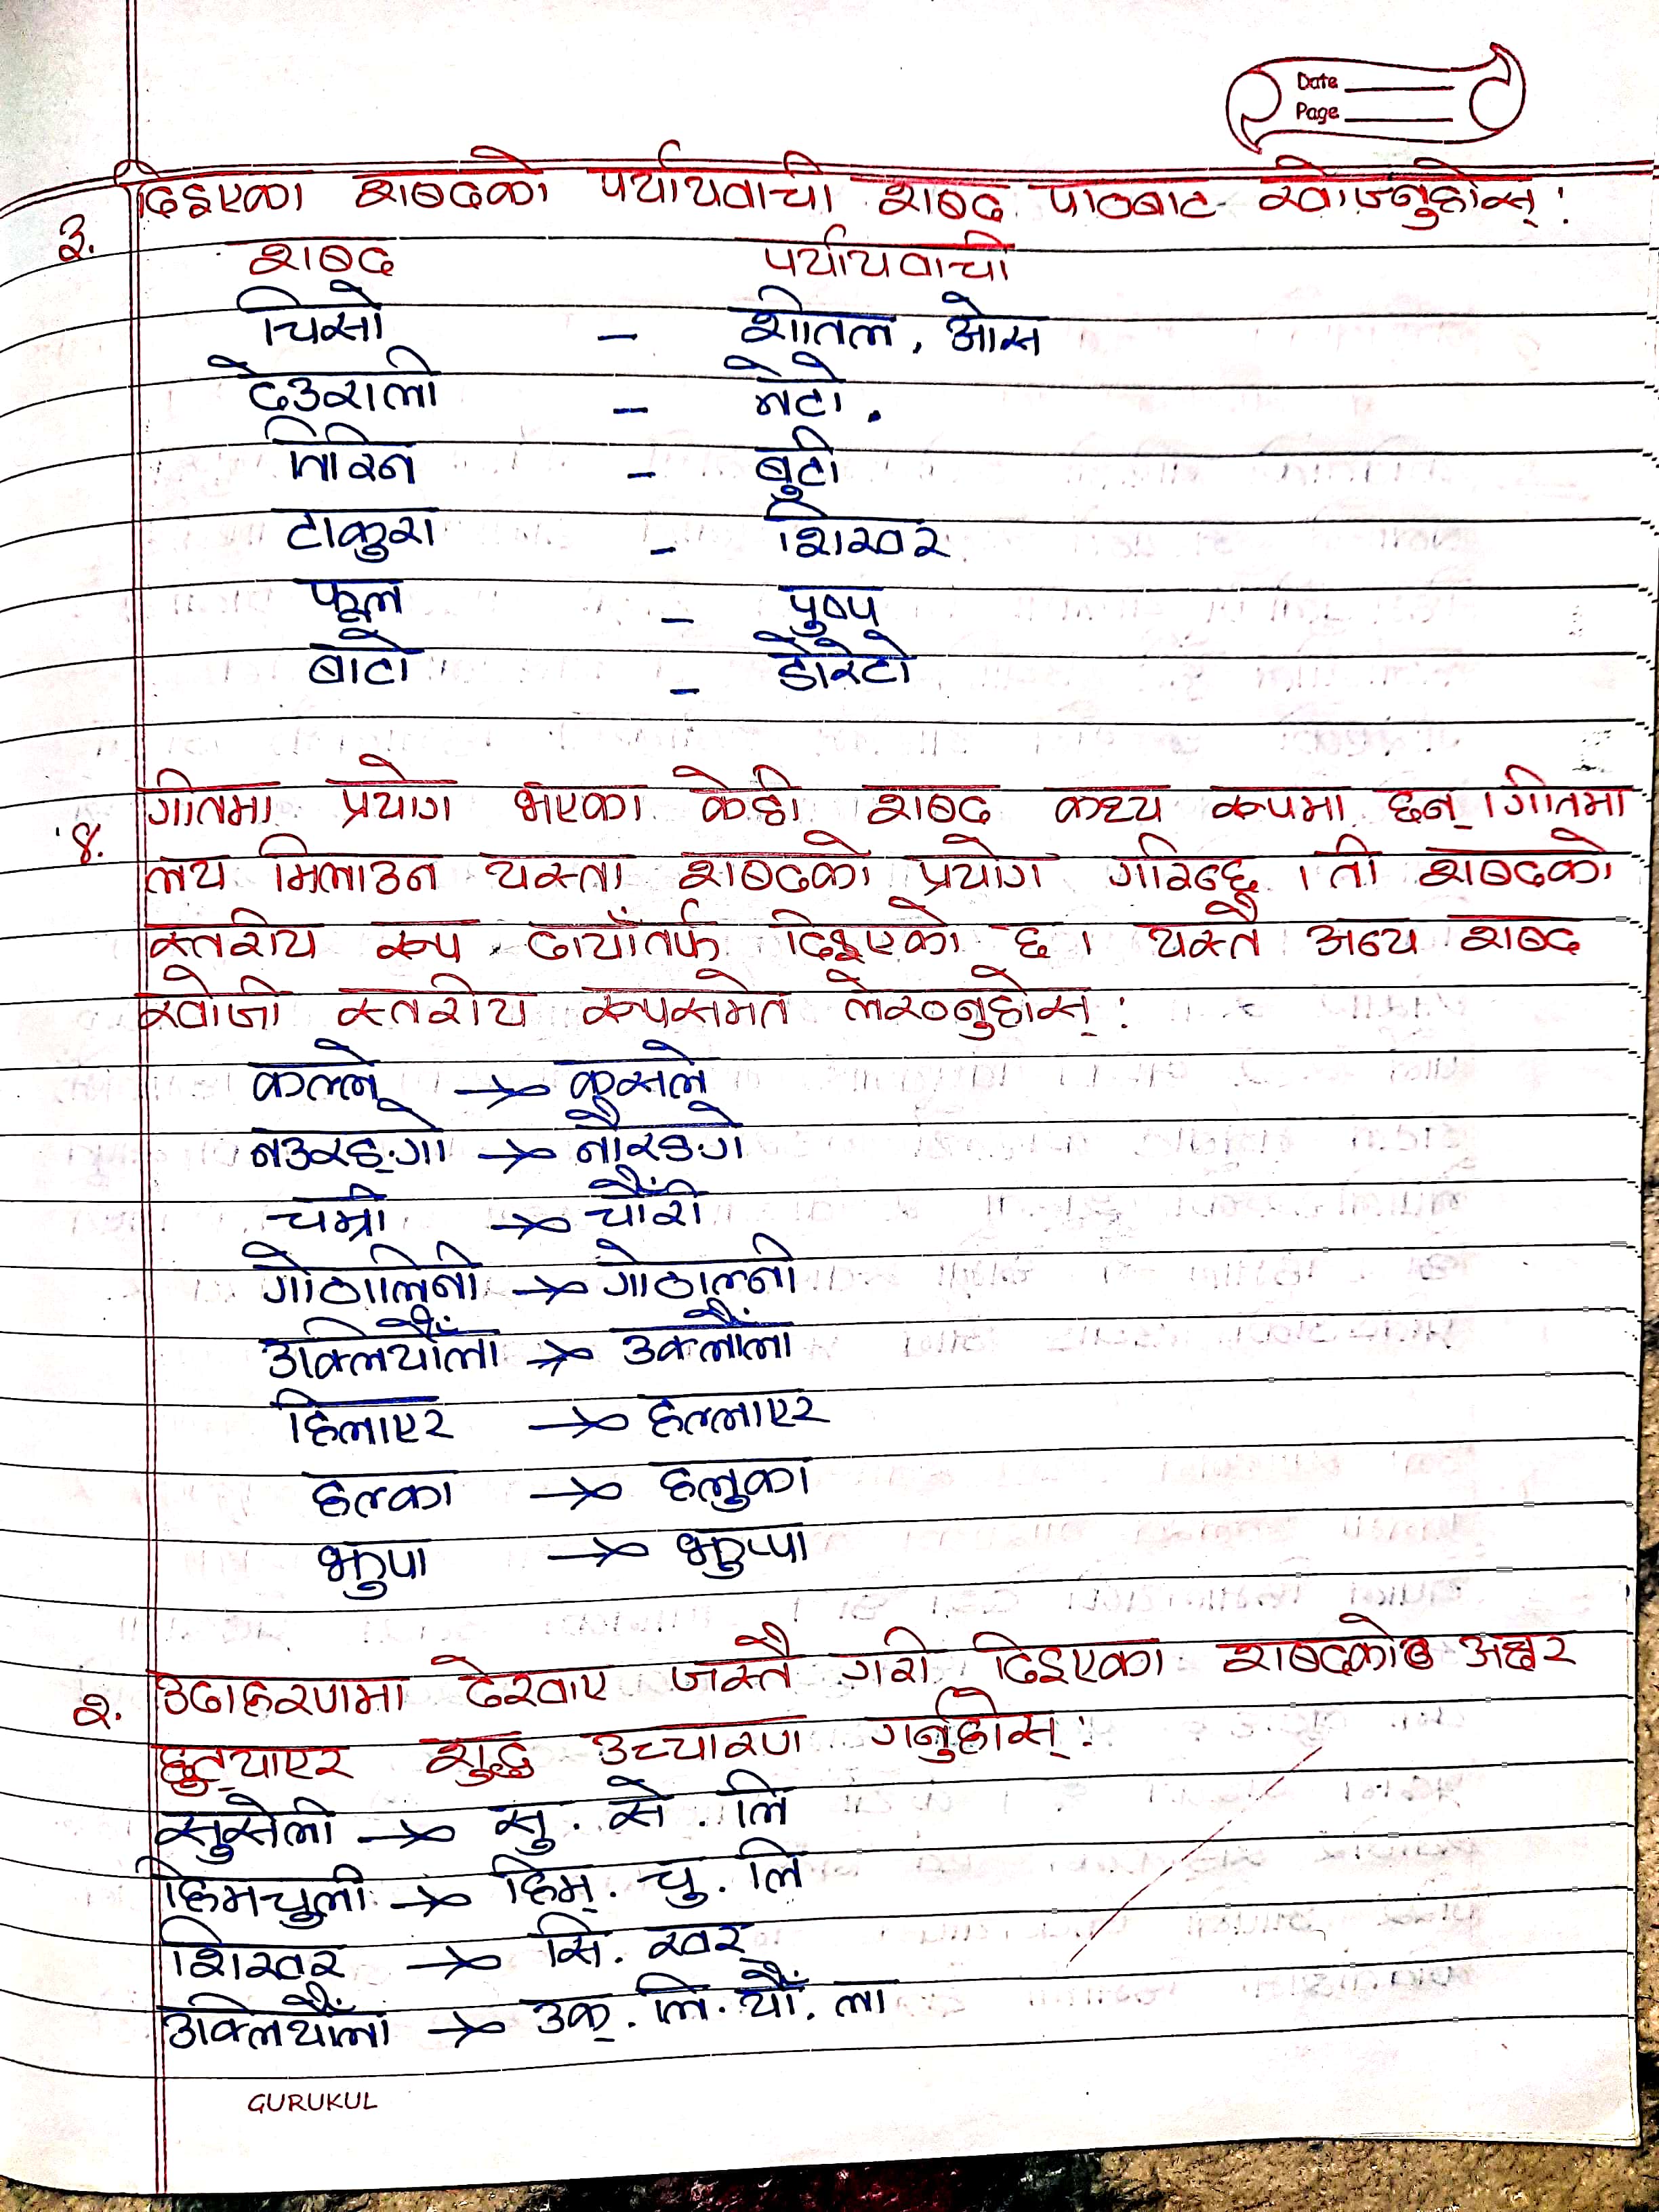 Date
Page
३. दिइएका शब्दको पर्यायवाची शब्द पाठबाट खोज्नुहोस् :
शब्द पर्यायवाची
चिसो – शीतल, ओस
देउराली – नेटो.
तिरिन – बुटी
टाकुरा – शिखर
फूल – पुष्प
बाटो – डोरेटो
४. गीतमा प्रयोग भएका केही शब्द कथ्य रूपमा छन् । गीतमा
लय मिलाउन यस्ता शब्दको प्रयोग गरिन्छ । ती शब्दको
स्तरीय रूप दायाँतर्फ दिइएको छ । यस्तै अन्य शब्द
खोजी स्तरीय रूपसमेत लेख्नुहोस् :
कल्ले → कसले
नउरङ्गी → नौरङ्गे
चम्री → चौंरी
गोठालिनी → गोठाल्नी
उक्लियौंला → उक्लौंला
हिलाएर → हल्लाएर
हल्का → हलुका
झुपा → झुप्पा
२. उदाहरणमा देखाए जस्तै गरी दिइएका शब्दको अक्षर
छुत्याएर शुद्ध उच्चारण गर्नुहोस् :
सुसेली → सु. से. लि
हिमचुली → हिम्. चु. लि
शिखर → सि. खर्
उक्लियौंला → उक्. लि. यौं. ला
GURUKUL